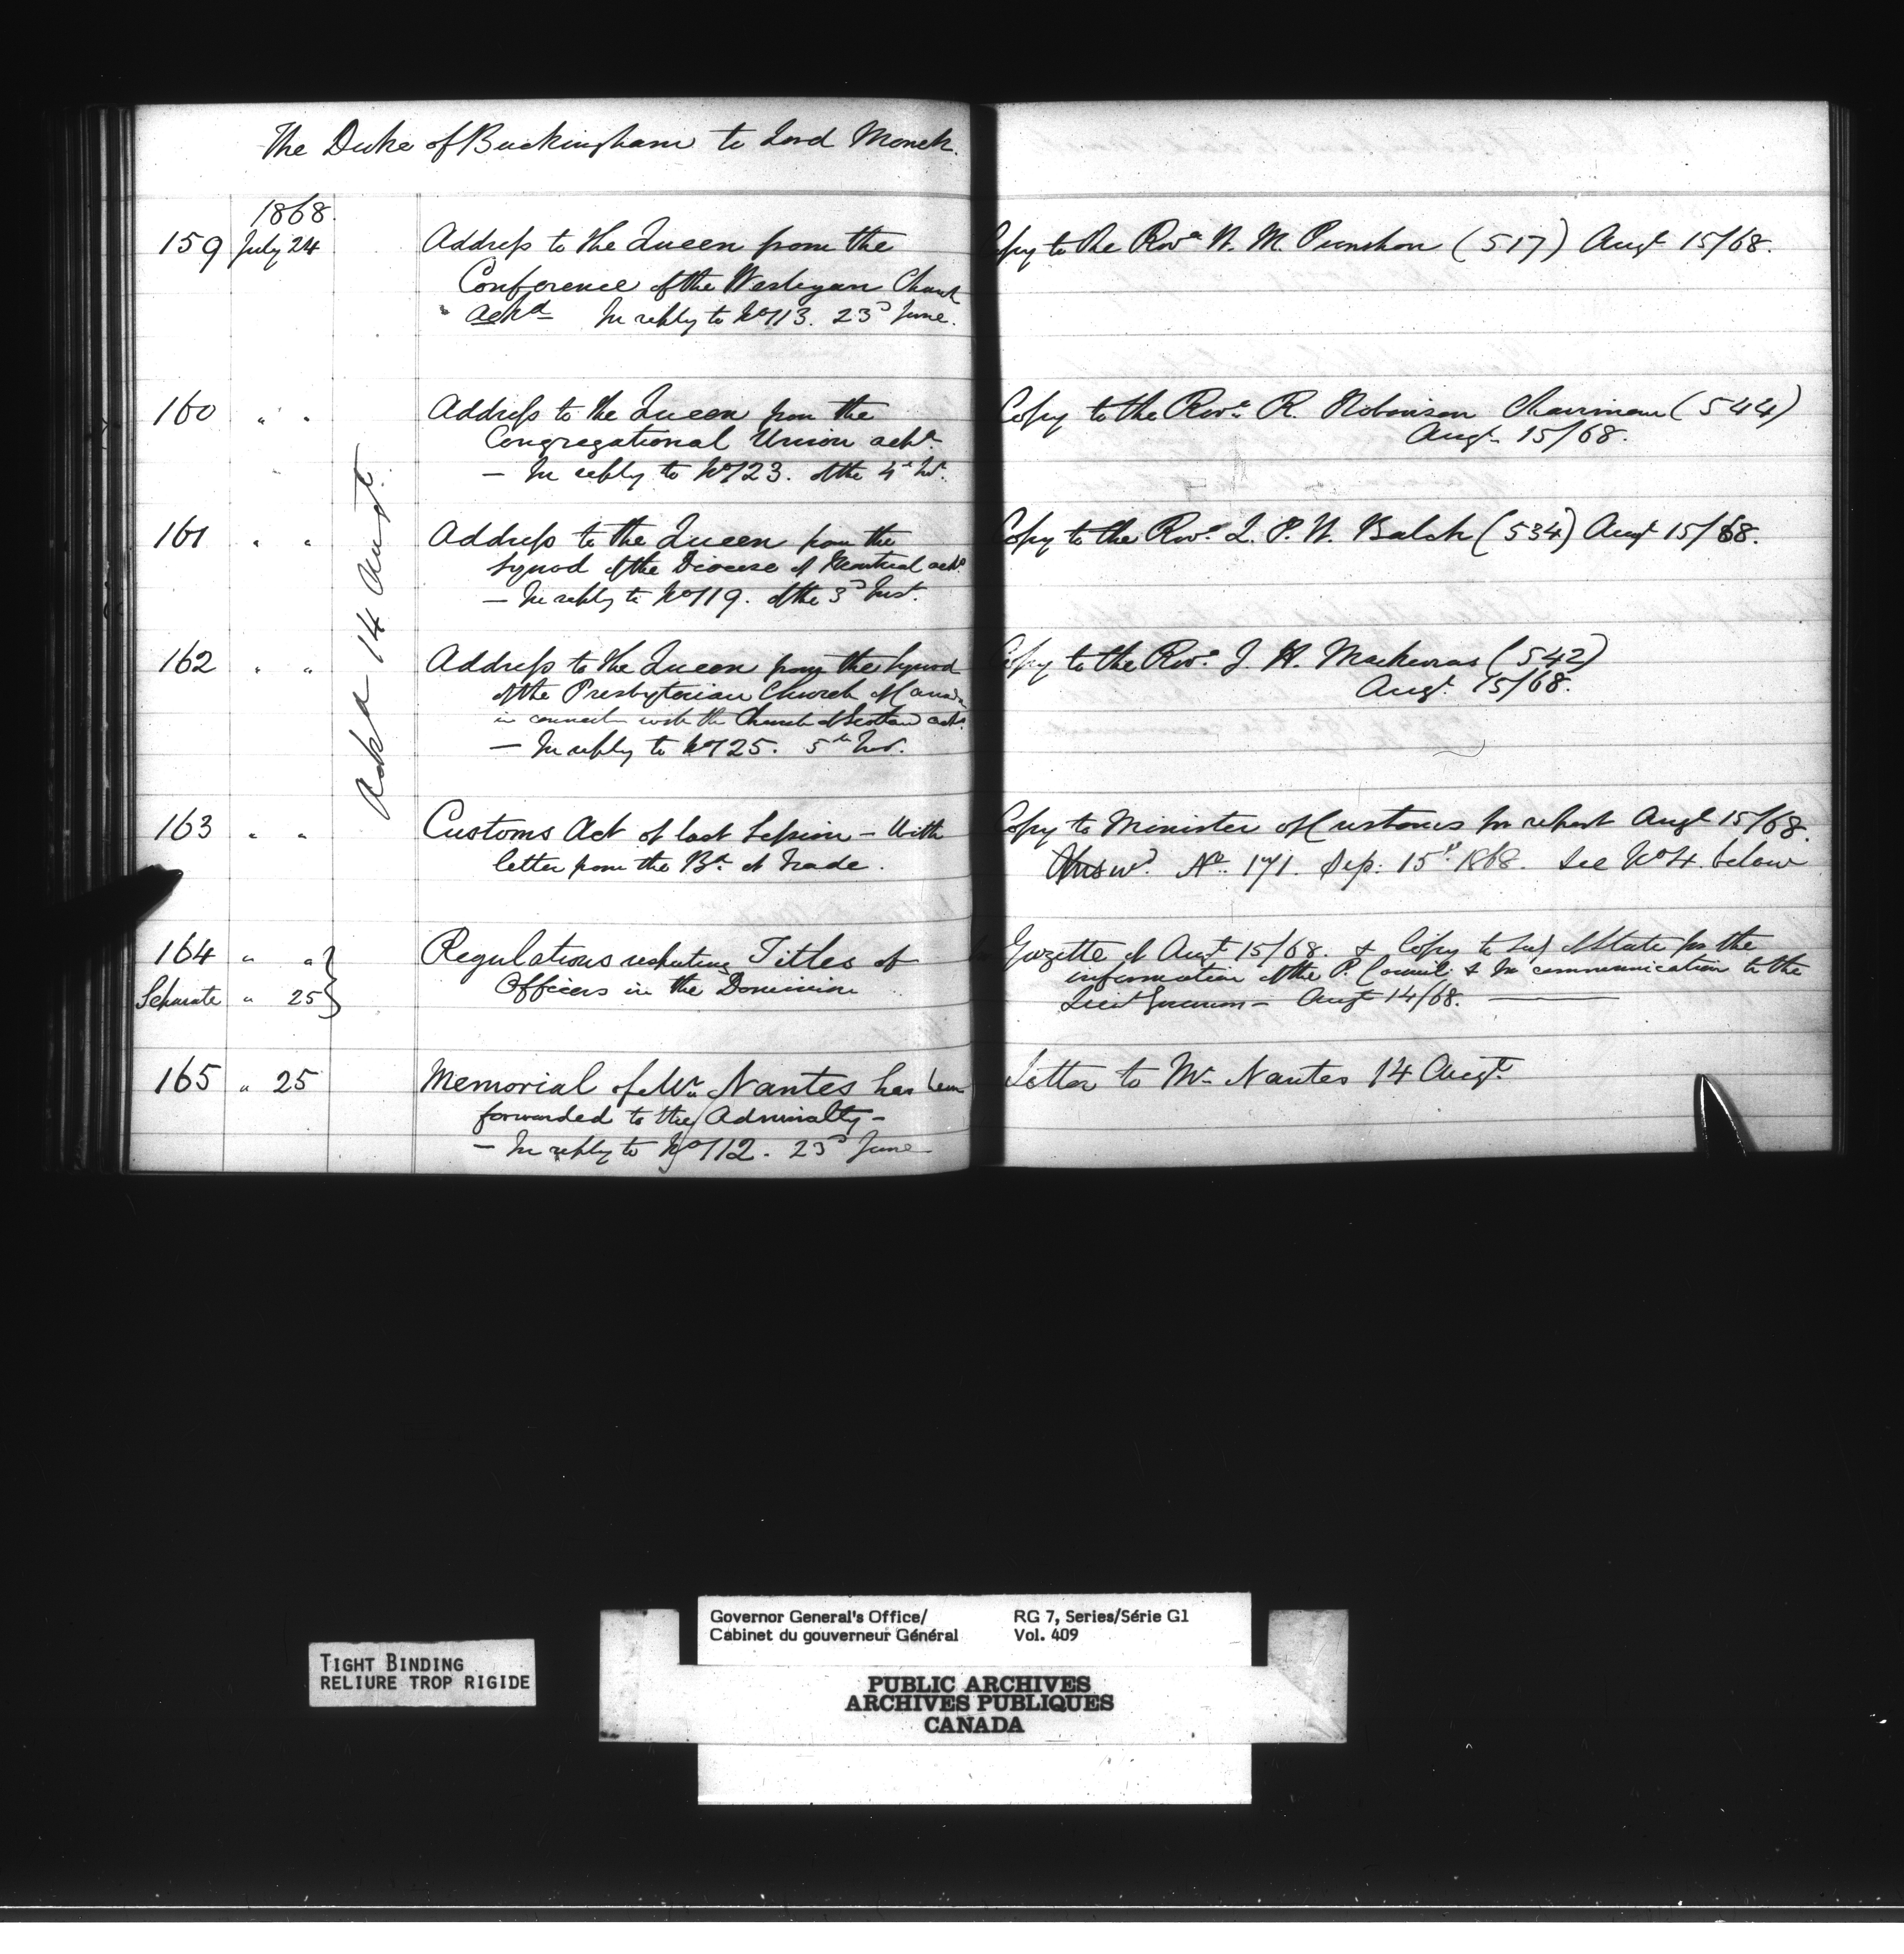 The Duke of Buckingham to Lord Monck.
1868.
159 July 24 Address to the Queen from the
Conference of the Wesleyan Church
ackd In reply to No 113. 23d June.
Copy to the Revd W. M. Punshon (517) Augt 15/68.
160 " " Address to the Queen from the
Congregational Union ackd
— In reply to No 123. of the 4th
Copy to the Revd R. Robinson Chairman (544)
Augt 15/68.
161 " " Address to the Queen from the
Synod of the Diocese of Montreal ackd
— In reply to No 119. of the 3d Inst.
Copy to the Revd L. P. W. Balch (534) Augt 15/68.
162 " " Address to the Queen from the Synod
of the Presbyterian Church of Canada
in connection with the Church of Scotland ackd
— In reply to No 125. 5th
Copy to the Revd J. H. Mackerras (542)
Augt 15/68.
Ackd 14 Augt.
163 " " Customs Act of last Session – With
letter from the Bd of Trade.
Copy to Minister of Customs for report Augt 15/68.
Answd No. 171. Sep. 15th 1868. See No 4. below
164 " "
Separate " 25
Regulations respecting Titles of
Officers in the Dominion
Gazette of Augt 15/68. & Copy to Secy of State for the
information of the P. Council & for communication to the
Lieut Governors – Augt 14/68.
165 " 25 Memorial of Mr. Nantes has been
forwarded to the Admiralty –
— In reply to No 112. 23d June
Letter to Mr. Nantes 14 Augt
TIGHT BINDING
RELIURE TROP RIGIDE
Governor General's Office/
Cabinet du gouverneur Général
RG 7, Series/Série G1
Vol. 409
PUBLIC ARCHIVES
ARCHIVES PUBLIQUES
CANADA